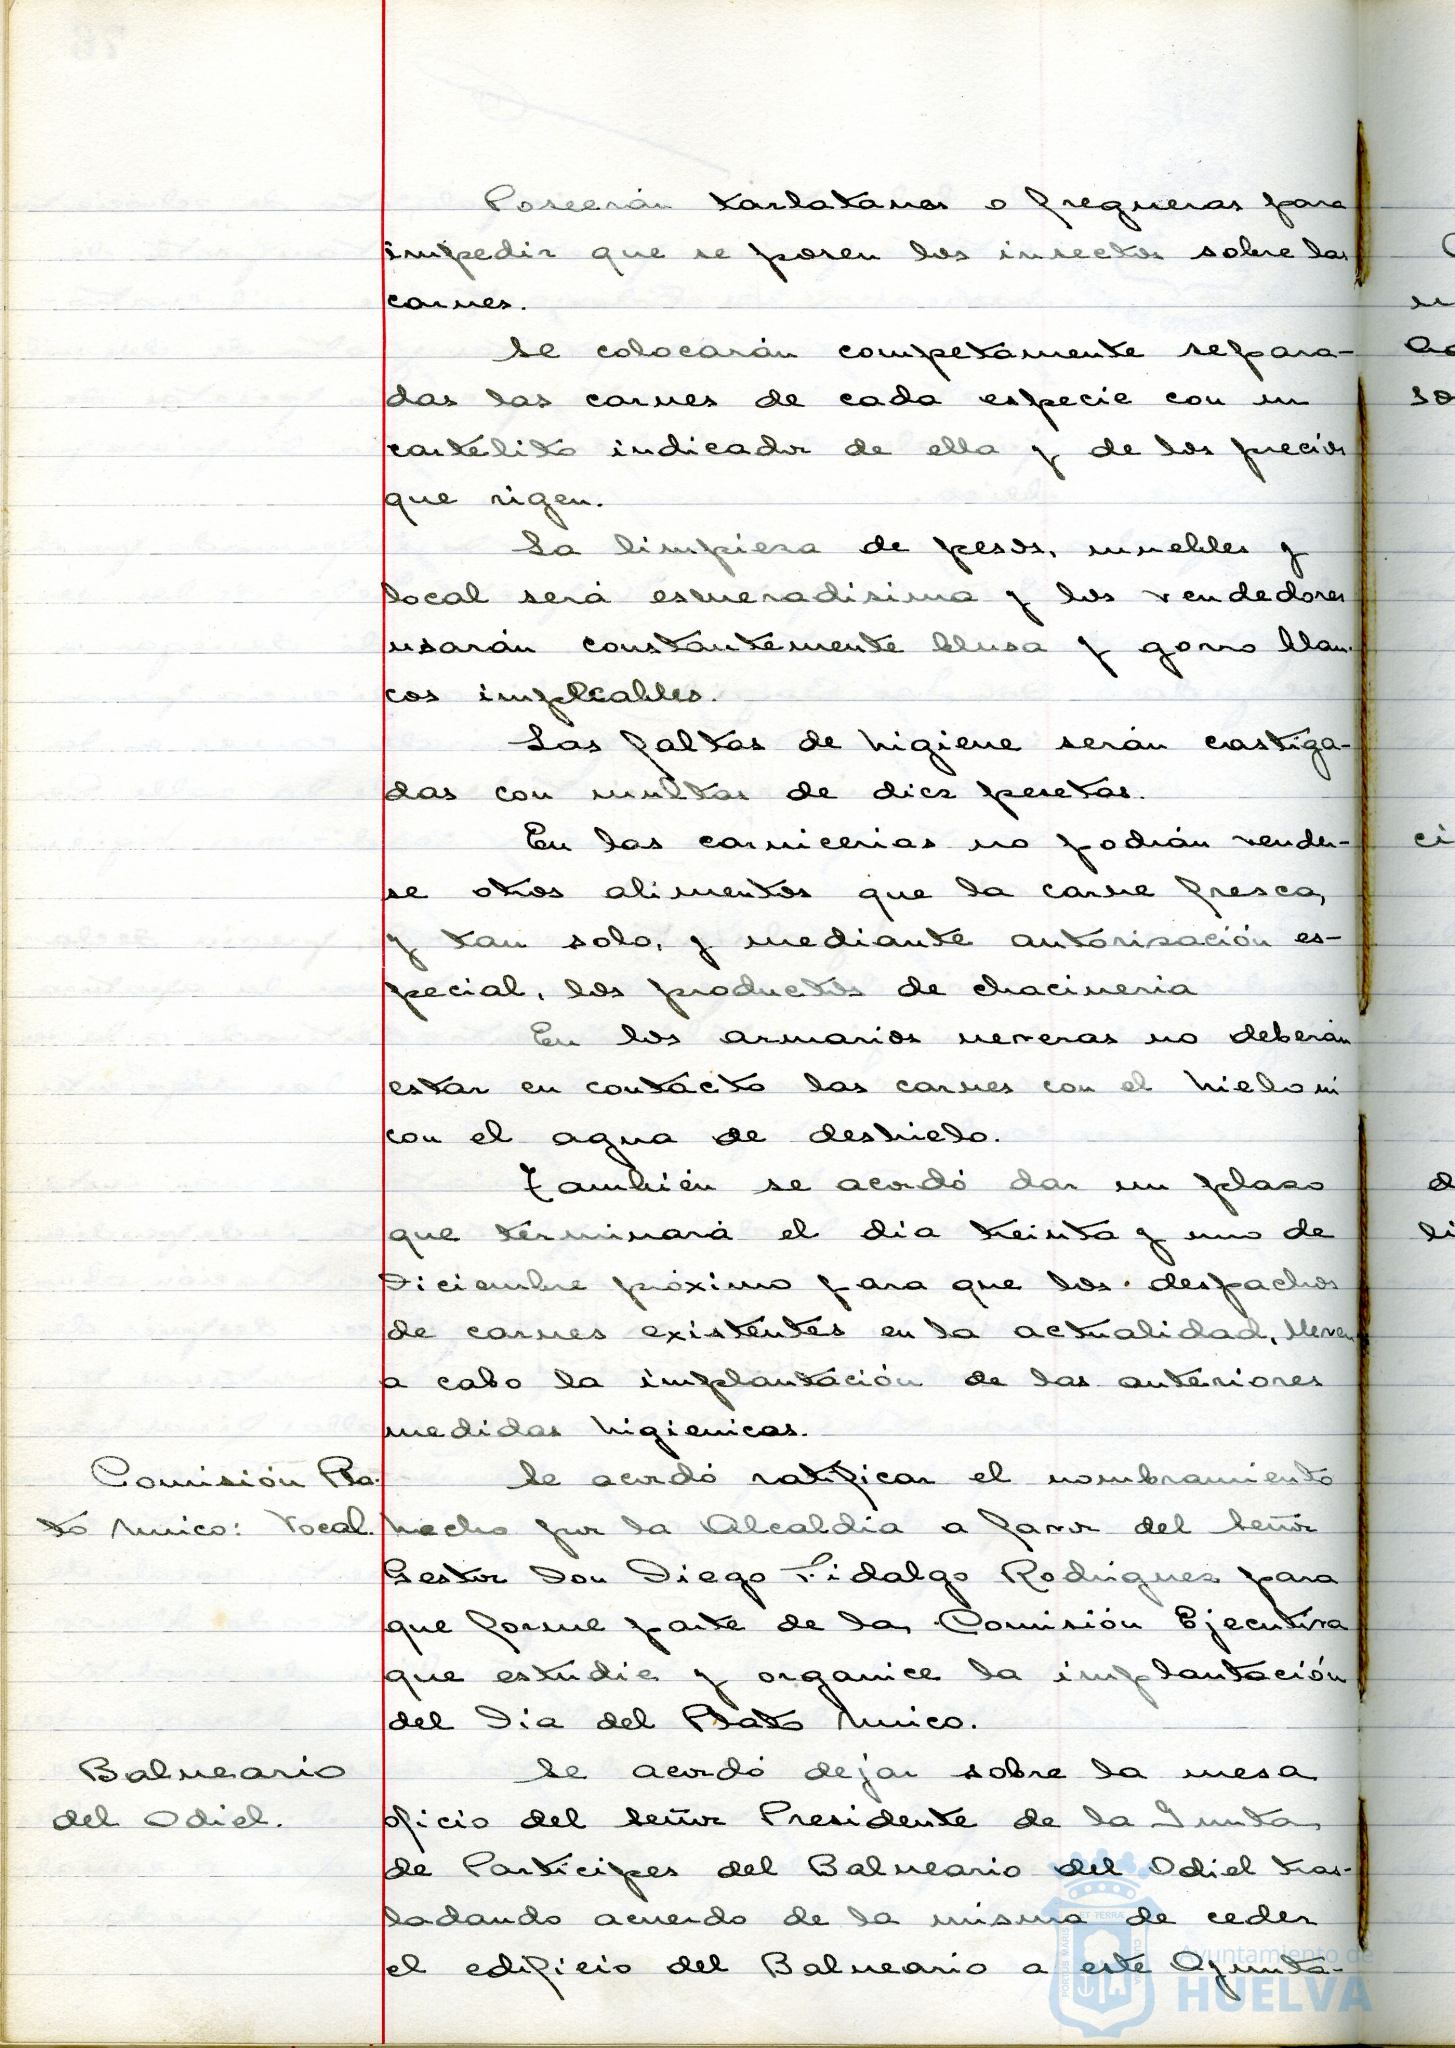 Poseerán tarlatanas o fregueras para
impedir que se posen los insectos sobre las
carnes.
Se colocarán competamente separa-
das las carnes de cada especie con un
cartelito indicador de ella y de los precios
que rigen.
La limpieza de pesos, muebles y
local será esmeradisima y los vendedores
usarán constantemente blusa y gorro blan-
cos implcables.
Las faltas de higiene serán castiga-
das con multas de diez pesetas.
En las carnicerias no podrán vender-
se otros alimentos que la carne fresca,
y tan solo, y mediante autorización es-
pecial, los productos de chacineria
En los armarios neveras no deberán
estar en contacto las carnes con el hielo ni
con el agua de deshielo.
También se acordó dar un plazo
que terminará el dia treinta y uno de
Diciembre próximo para que los despachos
de carnes existentes en la actualidad, lleven
a cabo la implantación de las anteriores
medidas higienicas.
Comisión Pla-
to Unico: Vocal.
Se acordó ratificar el nombramiento
hecho por la Alcaldia a favor del Señor
Gestor Don Diego Fidalgo Rodriguez para
que forme parte de la Comisión Ejecutiva
que estudie y organice la implantación
del Dia del Plato Unico.
Balneario
del Odiel.
Se acordó dejar sobre la mesa
oficio del Señor Presidente de la Junta
de Participes del Balneario del Odiel tras-
ladando acuerdo de la misma de ceder
el edificio del Balneario a este Ayunta-
Ayuntamiento de
HUELVA